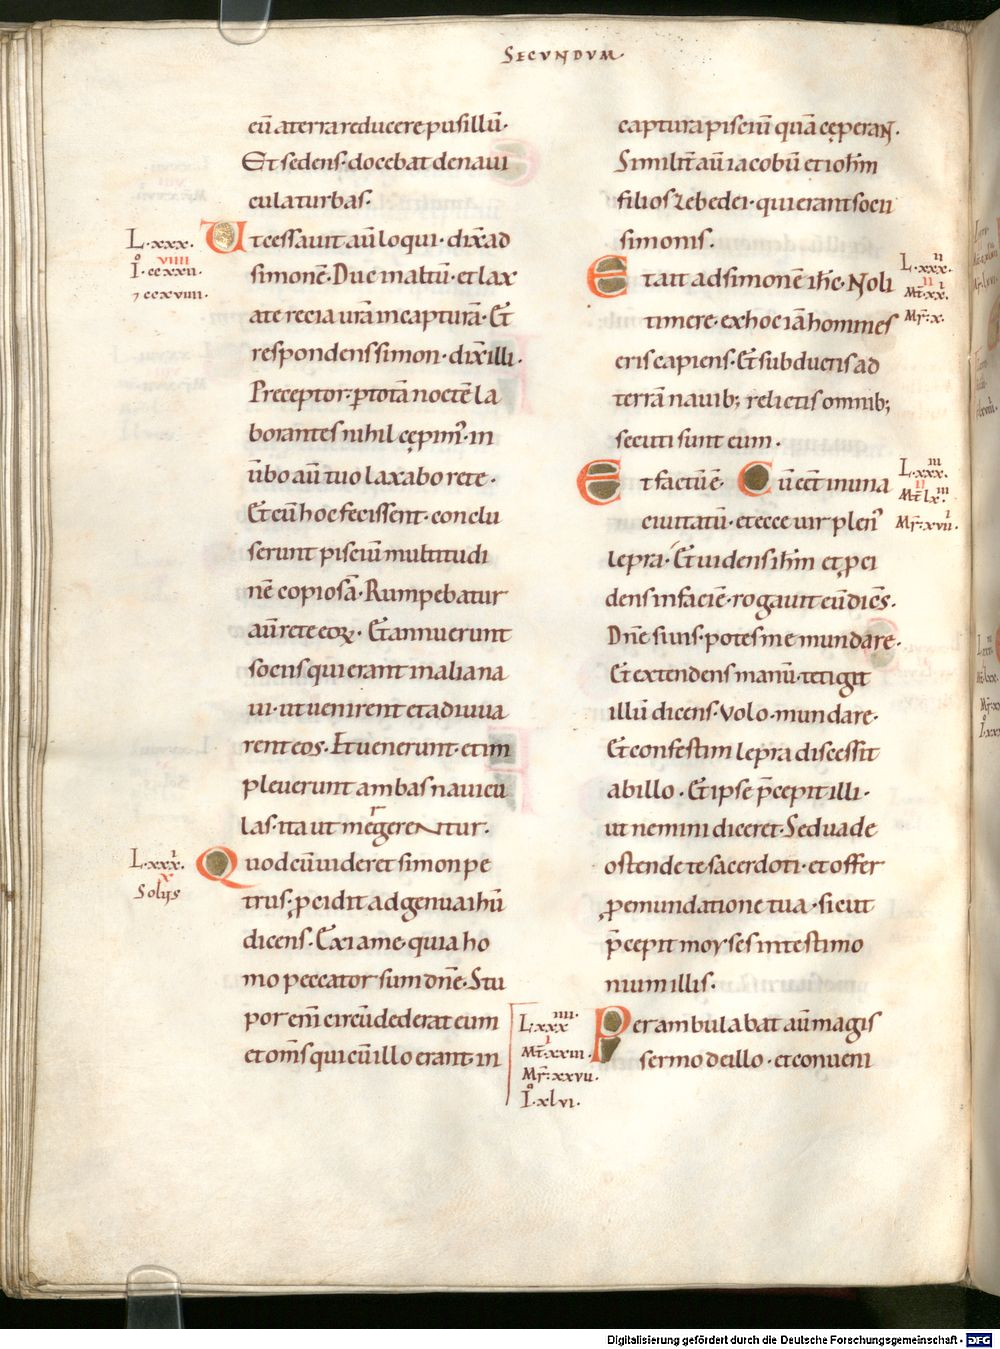 SECUNDUM·
eū a terra reducere pusillū·
Et sedens· docebat de naui
cula turbas·
L·xxx·
I·ccxxii·
viiii
⁊ccxviiii·
Ut cessauit aū loqui· dix̄ ad
simonē· Duc in altū· et lax
ate recia urā in capturā· Et
respondens simon· dix̄ illi·
Preceptor· ꝑ totā noctē la
borantes nihil cępim᾽· in
ūbo aū tuo laxabo rete·
Et cū hoc fecissent· conclu
serunt pisciū multitudi
nē copiosā· Rumpebatur
aū rete eoꝝ· Et annuerunt
sociis qui erant in alia na
ui· ut uenirent et adiuua
rent eos· Et uenerunt· et im
pleuerunt ambas nauicu
las· ita ut mergerentur·
L·xxxi·
x
Solus
Quod cū uideret simon pe
trus· ꝓcidit ad genua ih̄u
dicens· Exi a me· quia ho
mo peccator sum dn̄e· Stu
por eni̅ circūdederat eum
et om̄s qui cū illo erant· in
captura pisciū quā cęperant·
Similit̄ aū iacobū et ioh̄m
filios zebedei· qui erant socii
simonis·
L·xxxii·
ii
Mt̄·xxi·
Mr̄·x·
Et ait ad simonē ih̄c· Noli
timere· ex hoc iā homines
eris capiens· Et subductis ad
terrā nauib; relictis omnib;
secuti sunt eum·
L·xxxiii·
ii
Mt̄ lxiii·
Mr̄·xviii·
Et factū ē· Cū eēt in una
ciuitatū· et ecce uir plen᾽
lepra· Et uidens ih̄m et ꝓci
dens in faciē· rogauit eū diēs·
Dn̄e si uis· potes me mundare·
Et extendens manū· tetigit
illū dicens· Volo· mundare·
Et confestim lepra discessit
ab illo· Et ipse p̄cepit illi·
ut nemini diceret· Sed uade
ostende te sacerdoti· et offer
ꝓ emundatione tua· sicut
p̄cepit moyses in testimo
nium illis·
L·xxxiiii·
i
Mt̄·xxiii·
Mr̄·xxvii·
I·xlvi·
Perambulabat aū magis
sermo de illo· et conueni
Digitalisierung gefördert durch die Deutsche Forschungsgemeinschaft - DFG